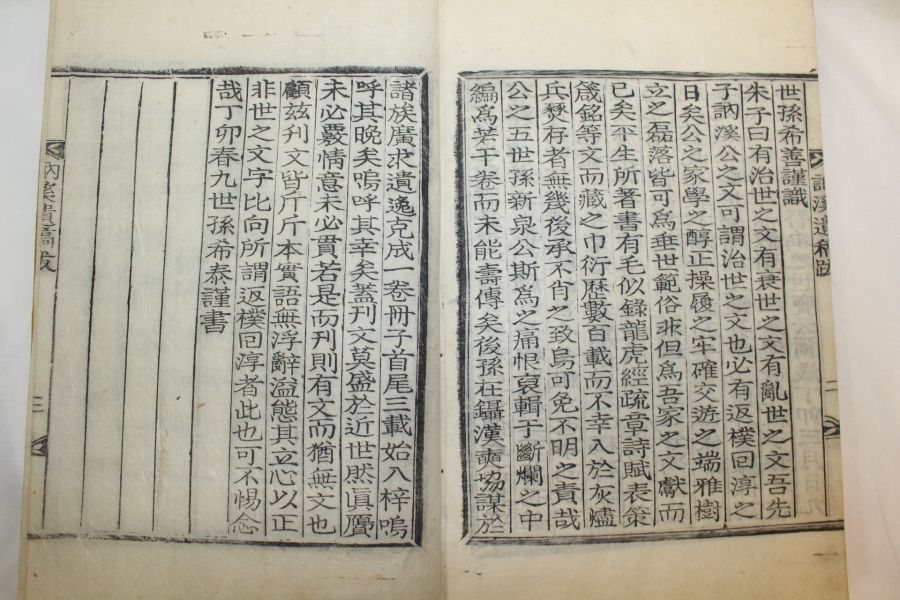 世孫希善謹識
朱子曰有治世之文有衰世之文有亂世之文吾先
子訥溪公之文可謂治世之文也必有返樸回淳之
日矣公之家學之醇正操履之牢確交遊之端雅樹
立之磊落皆可為垂世範俗非但為吾家之文獻而
已矣平生所著書有毛似錄龍虎經疏章詩賦表策
箴銘等文而藏之巾衍歷數百載而不幸入於灰燼
兵燹存者無幾後承不肖之致烏可免不明之責哉
公之五世孫新泉公斯為之痛恨裒輯于斷爛之中
編為若干卷而未能壽傳矣後孫在鑷漢奭協謀於
諸族廣求遺逸克成一卷冊子首尾三載始入梓嗚
呼其晚矣嗚呼其幸矣蓋刊文莫盛於近世然眞贗
未必覈情意未必貫若是而刊則有文而猶無文也
顧玆刊文皆斤斤本實語無浮辭溢態其立心以正
非世之文字比向所謂返樸回淳者此也可不惕念
哉丁卯春九世孫希泰謹書
訥溪遺稿跋
二